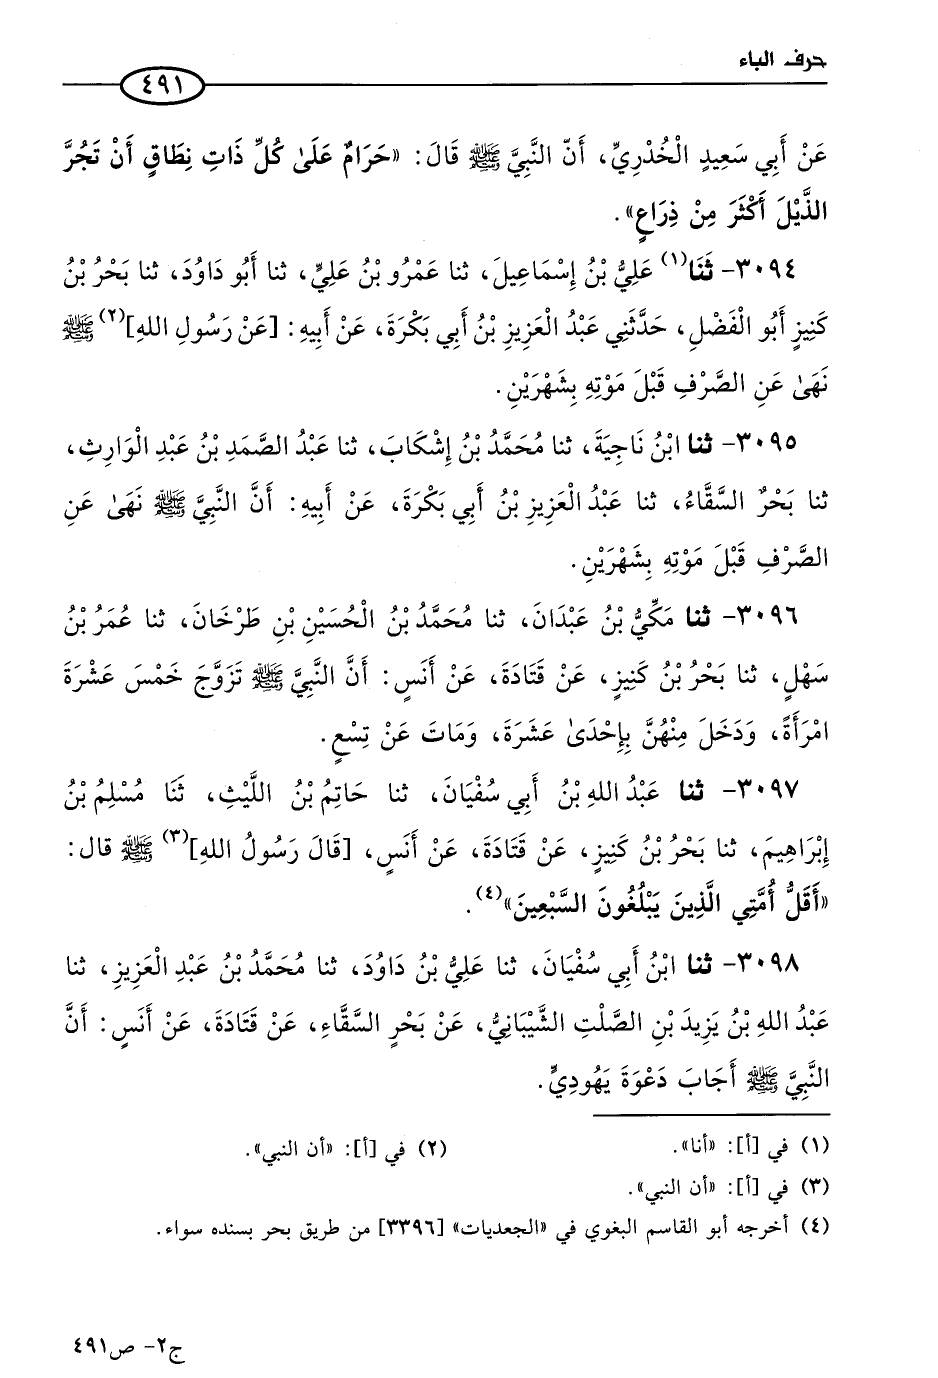 حرف الباء
٤٩١
عَنْ أَبِي سَعِيدٍ الْخُدْرِيِّ، أَنّ النَّبِيَّ ﷺ قَالَ: «حَرَامٌ عَلَىٰ كُلِّ ذَاتِ نِطَاقٍ أَنْ تَجُرَّ
الذَّيْلَ أَكْثَرَ مِنْ ذِرَاعٍ».
٣٠٩٤- ثَنَا(١) عَلِيُّ بْنُ إِسْمَاعِيلَ، ثنا عَمْرُو بْنُ عَلِيٍّ، ثنا أَبُو دَاوُدَ، ثنا بَحْرُ بْنُ
كَنِيزٍ أَبُو الْفَضْلِ، حَدَّثَنِي عَبْدُ الْعَزِيزِ بْنُ أَبِي بَكْرَةَ، عَنْ أَبِيهِ: [عَنْ رَسُولِ اللهِ](٢) ﷺ
نَهَىٰ عَنِ الصَّرْفِ قَبْلَ مَوْتِهِ بِشَهْرَيْنِ.
٣٠٩٥- ثنا ابْنُ نَاجِيَةَ، ثنا مُحَمَّدُ بْنُ إِشْكَابَ، ثنا عَبْدُ الصَّمَدِ بْنُ عَبْدِ الْوَارِثِ،
ثنا بَحْرٌ السَّقَّاءُ، ثنا عَبْدُ الْعَزِيزِ بْنُ أَبِي بَكْرَةَ، عَنْ أَبِيهِ: أَنَّ النَّبِيَّ ﷺ نَهَىٰ عَنِ
الصَّرْفِ قَبْلَ مَوْتِهِ بِشَهْرَيْنِ.
٣٠٩٦- ثنا مَكِّيُّ بْنُ عَبْدَانَ، ثنا مُحَمَّدُ بْنُ الْحُسَيْنِ بْنِ طَرْخَانَ، ثنا عُمَرُ بْنُ
سَهْلٍ، ثنا بَحْرُ بْنُ كَنِيزٍ، عَنْ قَتَادَةَ، عَنْ أَنَسٍ: أَنَّ النَّبِيَّ ﷺ تَزَوَّجَ خَمْسَ عَشْرَةَ
امْرَأَةً، وَدَخَلَ مِنْهُنَّ بِإِحْدَىٰ عَشَرَةَ، وَمَاتَ عَنْ تِسْعٍ.
٣٠٩٧- ثنا عَبْدُ اللهِ بْنُ أَبِي سُفْيَانَ، ثنا حَاتِمُ بْنُ اللَّيْثِ، ثَنَا مُسْلِمُ بْنُ
إِبْرَاهِيمَ، ثنا بَحْرُ بْنُ كَنِيزٍ، عَنْ قَتَادَةَ، عَنْ أَنَسٍ، [قَالَ رَسُولُ اللهِ](٣) ﷺ قال:
«أَقَلُّ أُمَّتِي الَّذِينَ يَبْلُغُونَ السَّبْعِينَ»(٤).
٣٠٩٨- ثنا ابْنُ أَبِي سُفْيَانَ، ثنا عَلِيُّ بْنُ دَاوُدَ، ثنا مُحَمَّدُ بْنُ عَبْدِ الْعَزِيزِ، ثنا
عَبْدُ اللهِ بْنُ يَزِيدَ بْنِ الصَّلْتِ الشَّيْبَانِيُّ، عَنْ بَحْرٍ السَّقَّاءِ، عَنْ قَتَادَةَ، عَنْ أَنَسٍ: أَنَّ
النَّبِيَّ ﷺ أَجَابَ دَعْوَةَ يَهُودِيٍّ.
(١) في [أ]: «أنا».
(٢) في [أ]: «أن النبي».
(٣) في [أ]: «أن النبي».
(٤) أخرجه أبو القاسم البغوي في «الجعديات» [٣٣٩٦] من طريق بحر بسنده سواء.
ج٢- ص٤٩١